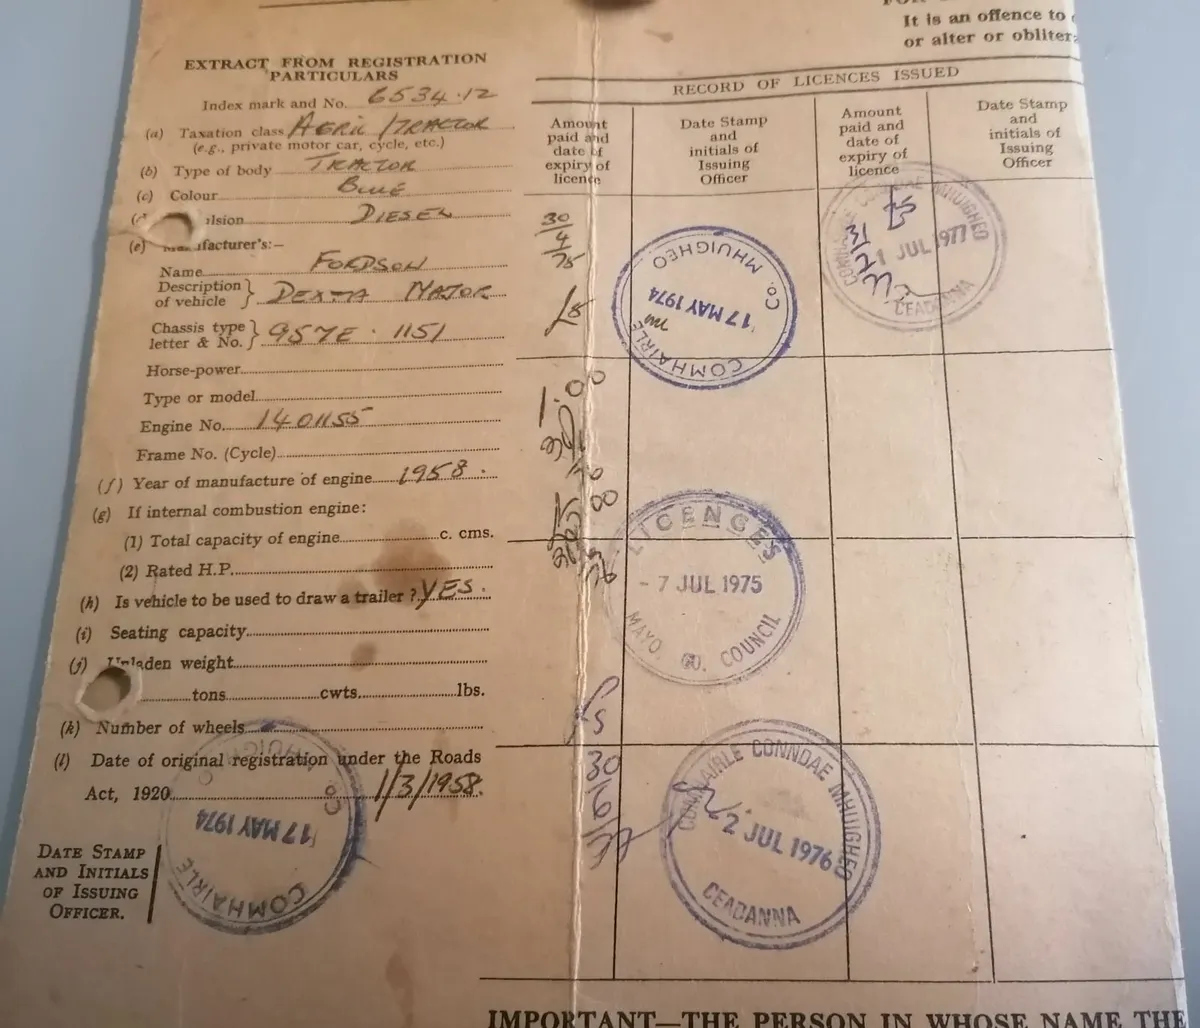 It is an offence to
or alter or obliter
EXTRACT FROM REGISTRATION
PARTICULARS
Index mark and No. 6534·12
(a) Taxation class AGRIL/TRACTOR
(e.g., private motor car, cycle, etc.)
(b) Type of body TRACTOR
(c) Colour BLUE
ulsion DIESEL
(e) Manufacturer's:—
Name FORDSON
Description
of vehicle } DEXTA MAJOR
Chassis type
letter & No. } 957E · 1151
Horse-power
Type or model
Engine No. 1401155
Frame No. (Cycle)
(f) Year of manufacture of engine 1958.
(g) If internal combustion engine:
(1) Total capacity of engine c. cms.
(2) Rated H.P.
(h) Is vehicle to be used to draw a trailer? YES.
(i) Seating capacity
(j) Unladen weight
tons cwts. lbs.
(k) Number of wheels
(l) Date of original registration under the Roads
Act, 1920 1/3/1958.
DATE STAMP
AND INITIALS
OF ISSUING
OFFICER.
COMHAIRLE CO. MHUIGHEO
17 MAY 1974
RECORD OF LICENCES ISSUED
Amount
paid and
date of
expiry of
licence
Date Stamp
and
initials of
Issuing
Officer
Amount
paid and
date of
expiry of
licence
Date Stamp
and
initials of
Issuing
Officer
30
4
75
£8
COMHAIRLE CO. MHUIGHEO
17 MAY 1974
LICENCES
- 7 JUL 1975
MAYO. CO. COUNCIL
£5
30
6
COMHAIRLE CONNDAE MHUIGHEO
2 JUL 1976
CEADANNA
COMHAIRLE CONNDAE MHUIGHEO
1 JUL 1977
CEADANNA
IMPORTANT—THE PERSON IN WHOSE NAME THE